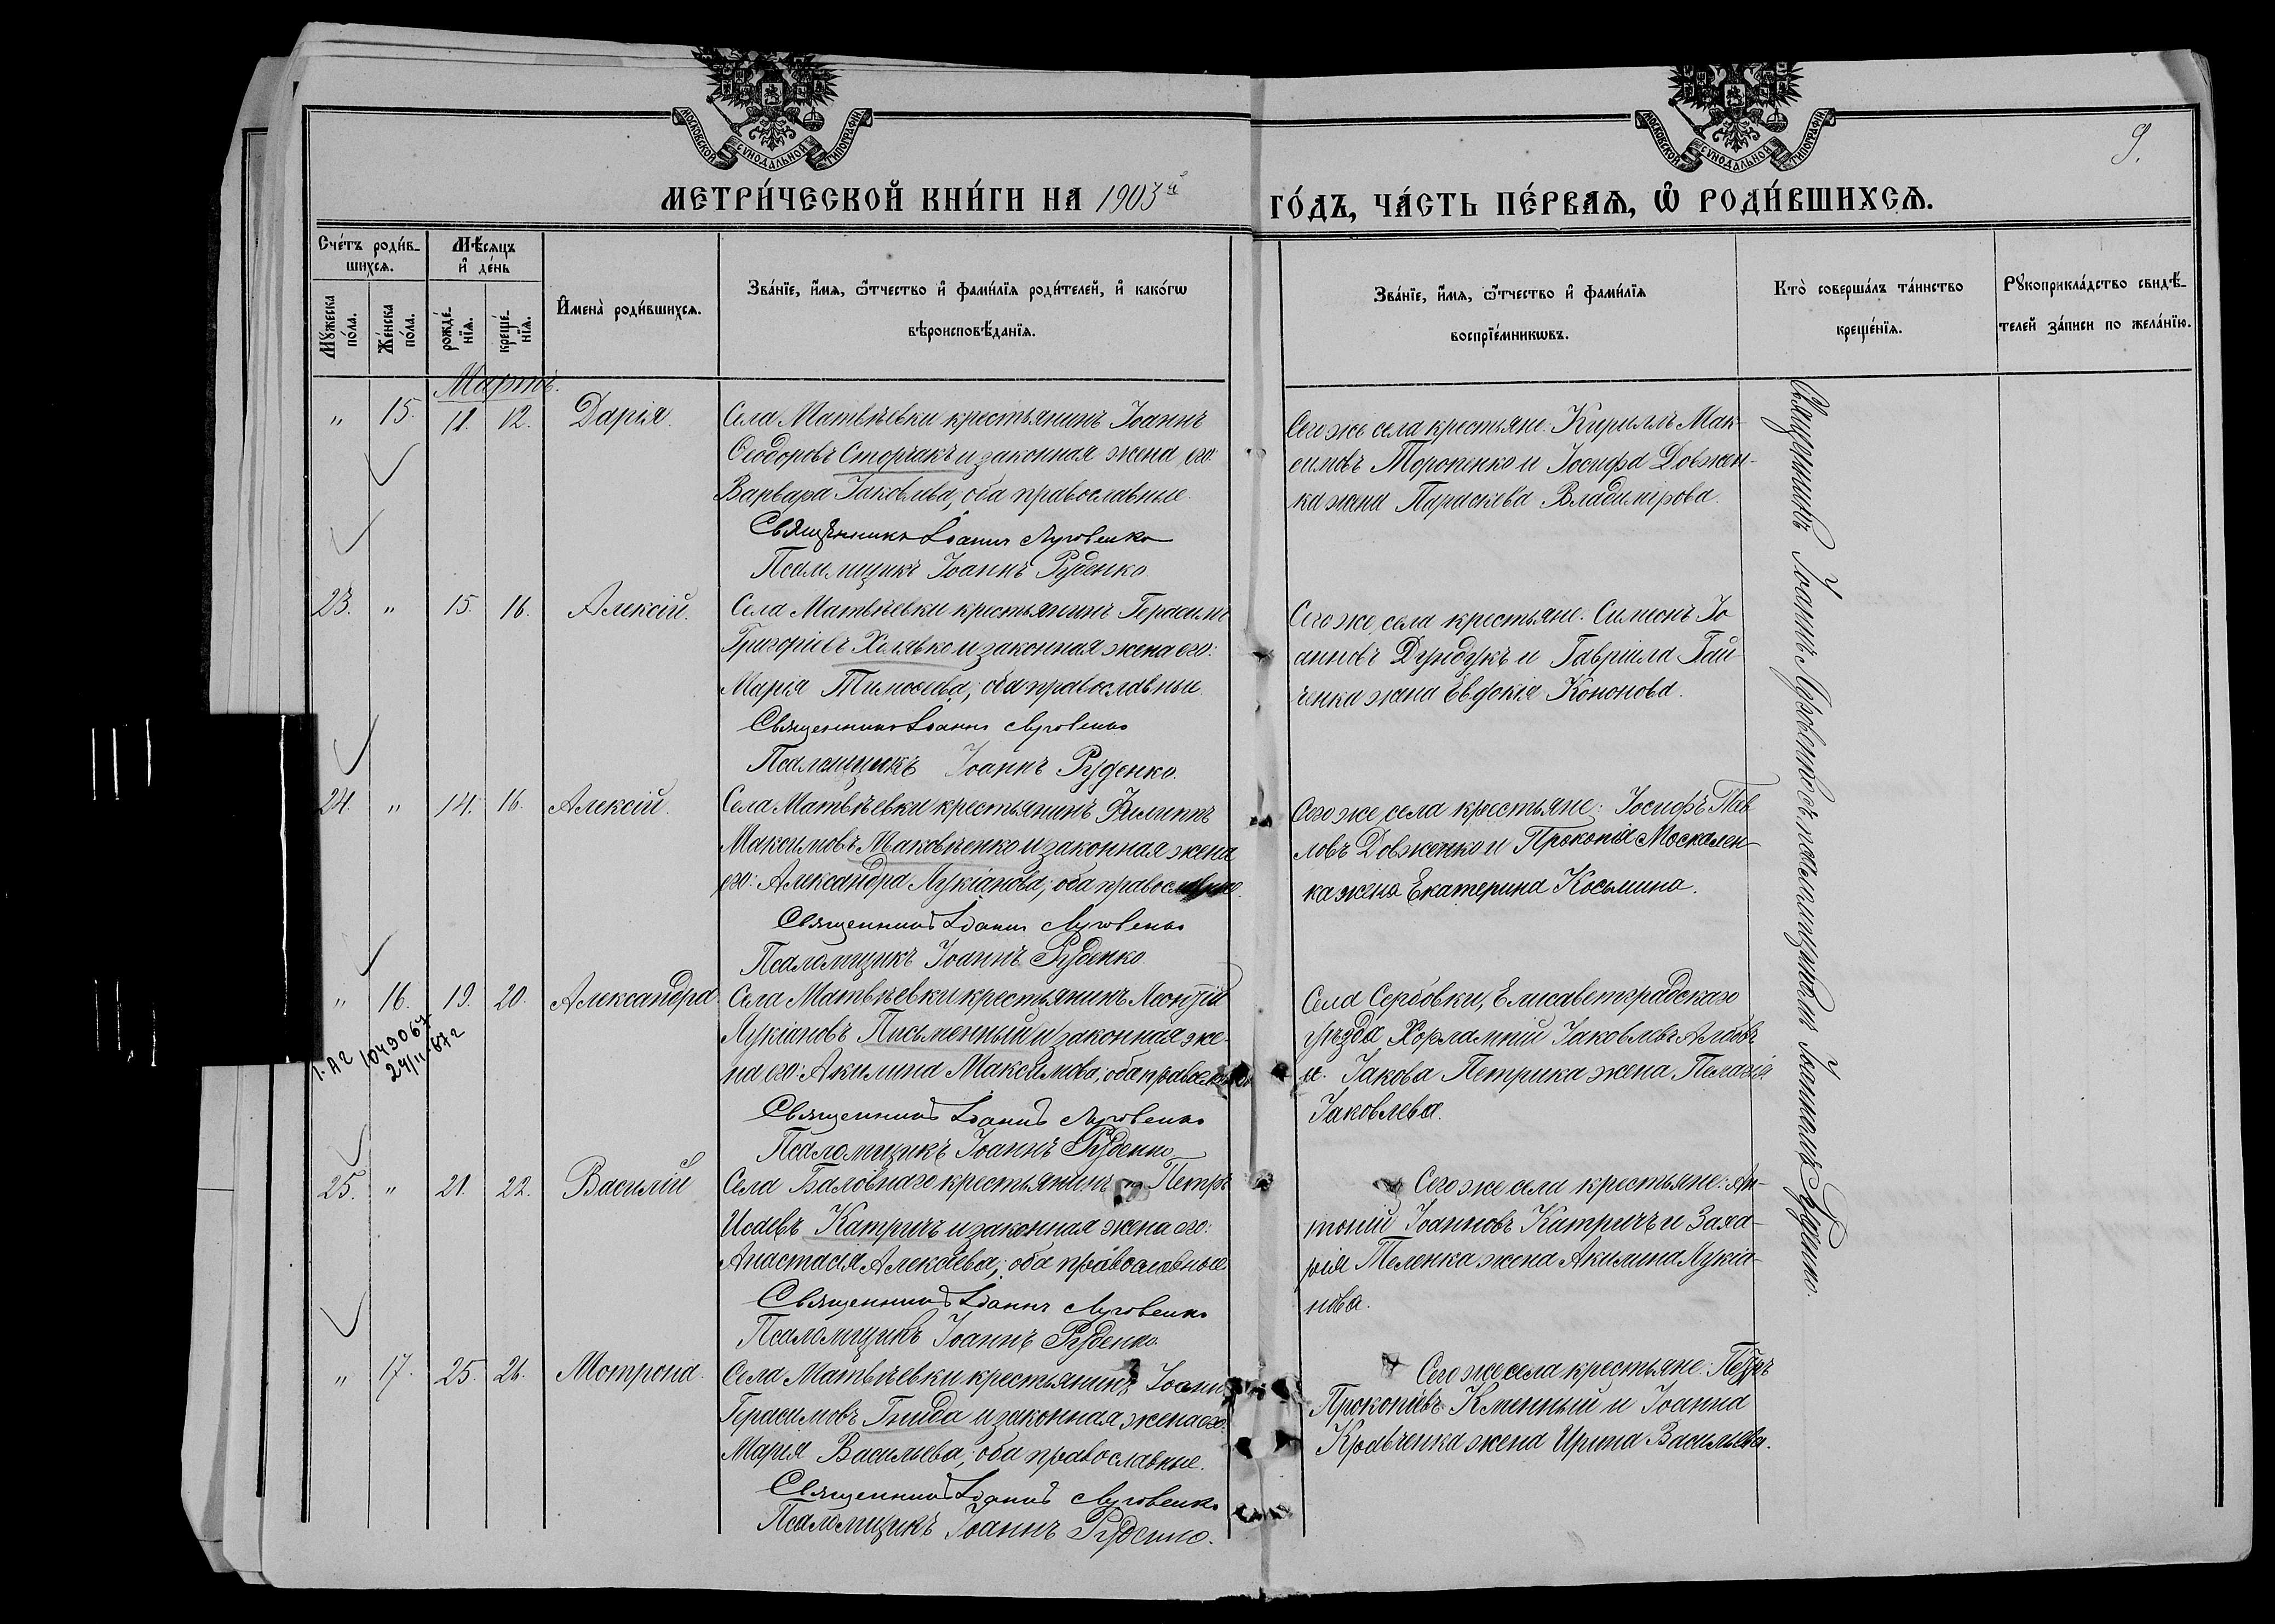 МОСКОВСКОЙ СѴНОДАЛЬНОЙ ТИПОГРАФІИ
МОСКОВСКОЙ СѴНОДАЛЬНОЙ ТИПОГРАФІИ
9.
МЕТРИ́ЧЕСКОЙ КНИ́ГИ НА 1903й
ГО́ДЪ, ЧА́СТЬ ПЕ́РВАѦ, Ѽ РОДИ́ВШИХСѦ.
Сче́тъ роди́в-
шихсѧ.
Мѣ́сѧцъ
и҆ де́нь
Мꙋ́жеска
по́ла.
Же́нска
по́ла.
рожде́-
нїѧ.
креще́-
нїѧ.
И҆мена̀ роди́вшихсѧ.
Зва́нїе, и҆́мѧ, ѻ҆́тчество и҆ фами́лїѧ роди́телей, и҆ како́гѡ
вѣроисповѣ́данїѧ.
Зва́нїе, и҆́мѧ, ѻ҆́тчество и҆ фами́лїѧ
воспрїе́мникѡвъ.
Кто̀ соверша́лъ та́инство
креще́нїѧ.
Рꙋкоприкла́дство свидѣ́-
телей за́писи по жела́нїю.
Мартъ.
" 15. 11. 12. Дарія.
Села Матвѣевки крестьянинъ Іоаннъ
Ѳеодоровъ Сторчакъ и законная жена его:
Варвара Іаковлева, оба православные.
Священникъ Іоаннъ Луговенко
Псаломщикъ Іоаннъ Руденко.
Сего же села крестьяне: Кириллъ Мак-
симовъ Торопенко и Іосифа Довжен-
ка жена Параскева Владимірова.
23. " 15. 16. Алексій.
Села Матвѣевки крестьянинъ Герасимъ
Григоріевъ Халявко и законная жена его:
Марія Тимоѳеева; оба православные.
Священникъ Іоаннъ Луговенко
Псаломщикъ Іоаннъ Руденко.
Сего же села крестьяне: Симеонъ Іо-
анновъ Дундукъ и Гавріила Гай-
ченка жена Евдокія Кононова.
24. " 14. 16. Алексій.
Села Матвѣевки крестьянинъ Филиппъ
Максимовъ Маковѣенко и законная жена
его: Александра Лукіанова; оба православные.
Священникъ Іоаннъ Луговенко
Псаломщикъ Іоаннъ Руденко.
Сего же села крестьяне: Іосифъ Пав-
ловъ Довженко и Прокопія Москален-
ка жена Екатерина Косьмина.
" 16. 19. 20. Александра.
1-АГ 1049067
24/II-87 г
Села Матвѣевки крестьянинъ Леонтій
Лукіановъ Письменный и законная же-
на его: Акилина Максимова; оба православные
Священникъ Іоаннъ Луговенко
Псаломщикъ Іоаннъ Руденко
Села Сербовки, Елисаветградскаго
уѣзда Харлампій Іаковлевъ
и Іакова Петрика жена Пелагія
Іаковлева.
25. " 21. 22. Василій
Села Баловнаго крестьянинъ Петръ
Исаевъ Катричъ и законная жена его:
Анастасія Алексѣева; оба православные
Священникъ Іоаннъ Луговенко
Псаломщикъ Іоаннъ Руденко
Сего же села крестьяне: Ан-
тоній Іоанновъ Катричъ и Заха-
рія Теленка жена Акилина Лукіа-
нова.
" 17. 25. 26. Мотрона.
Села Матвѣевки крестьянинъ Іоаннъ
Герасимовъ Гнида и законная жена его:
Марія Васильева; оба православные.
Священникъ Іоаннъ Луговенко
Псаломщикъ Іоаннъ Руденко.
Сего же села крестьяне: Петръ
Прокопіевъ и Іоанна
Кравченка жена Ирина Васильева.
Священникъ Іоаннъ Луговенко съ псаломщикомъ Іоанномъ Руденко.